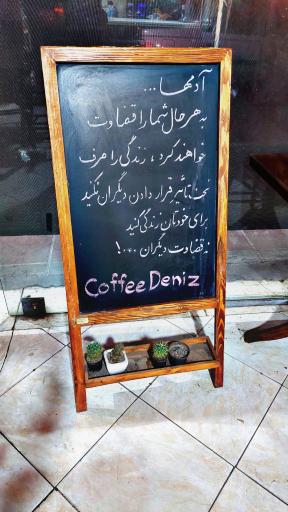 آدمها...
به هر حال شما را قضاوت
خواهند کرد ، زندگی را صرف
تحت تاثیر قرار دادن دیگران نکنید
برای خودتان زندگی کنید
نه قضاوت دیگران ...!
Coffee Deniz